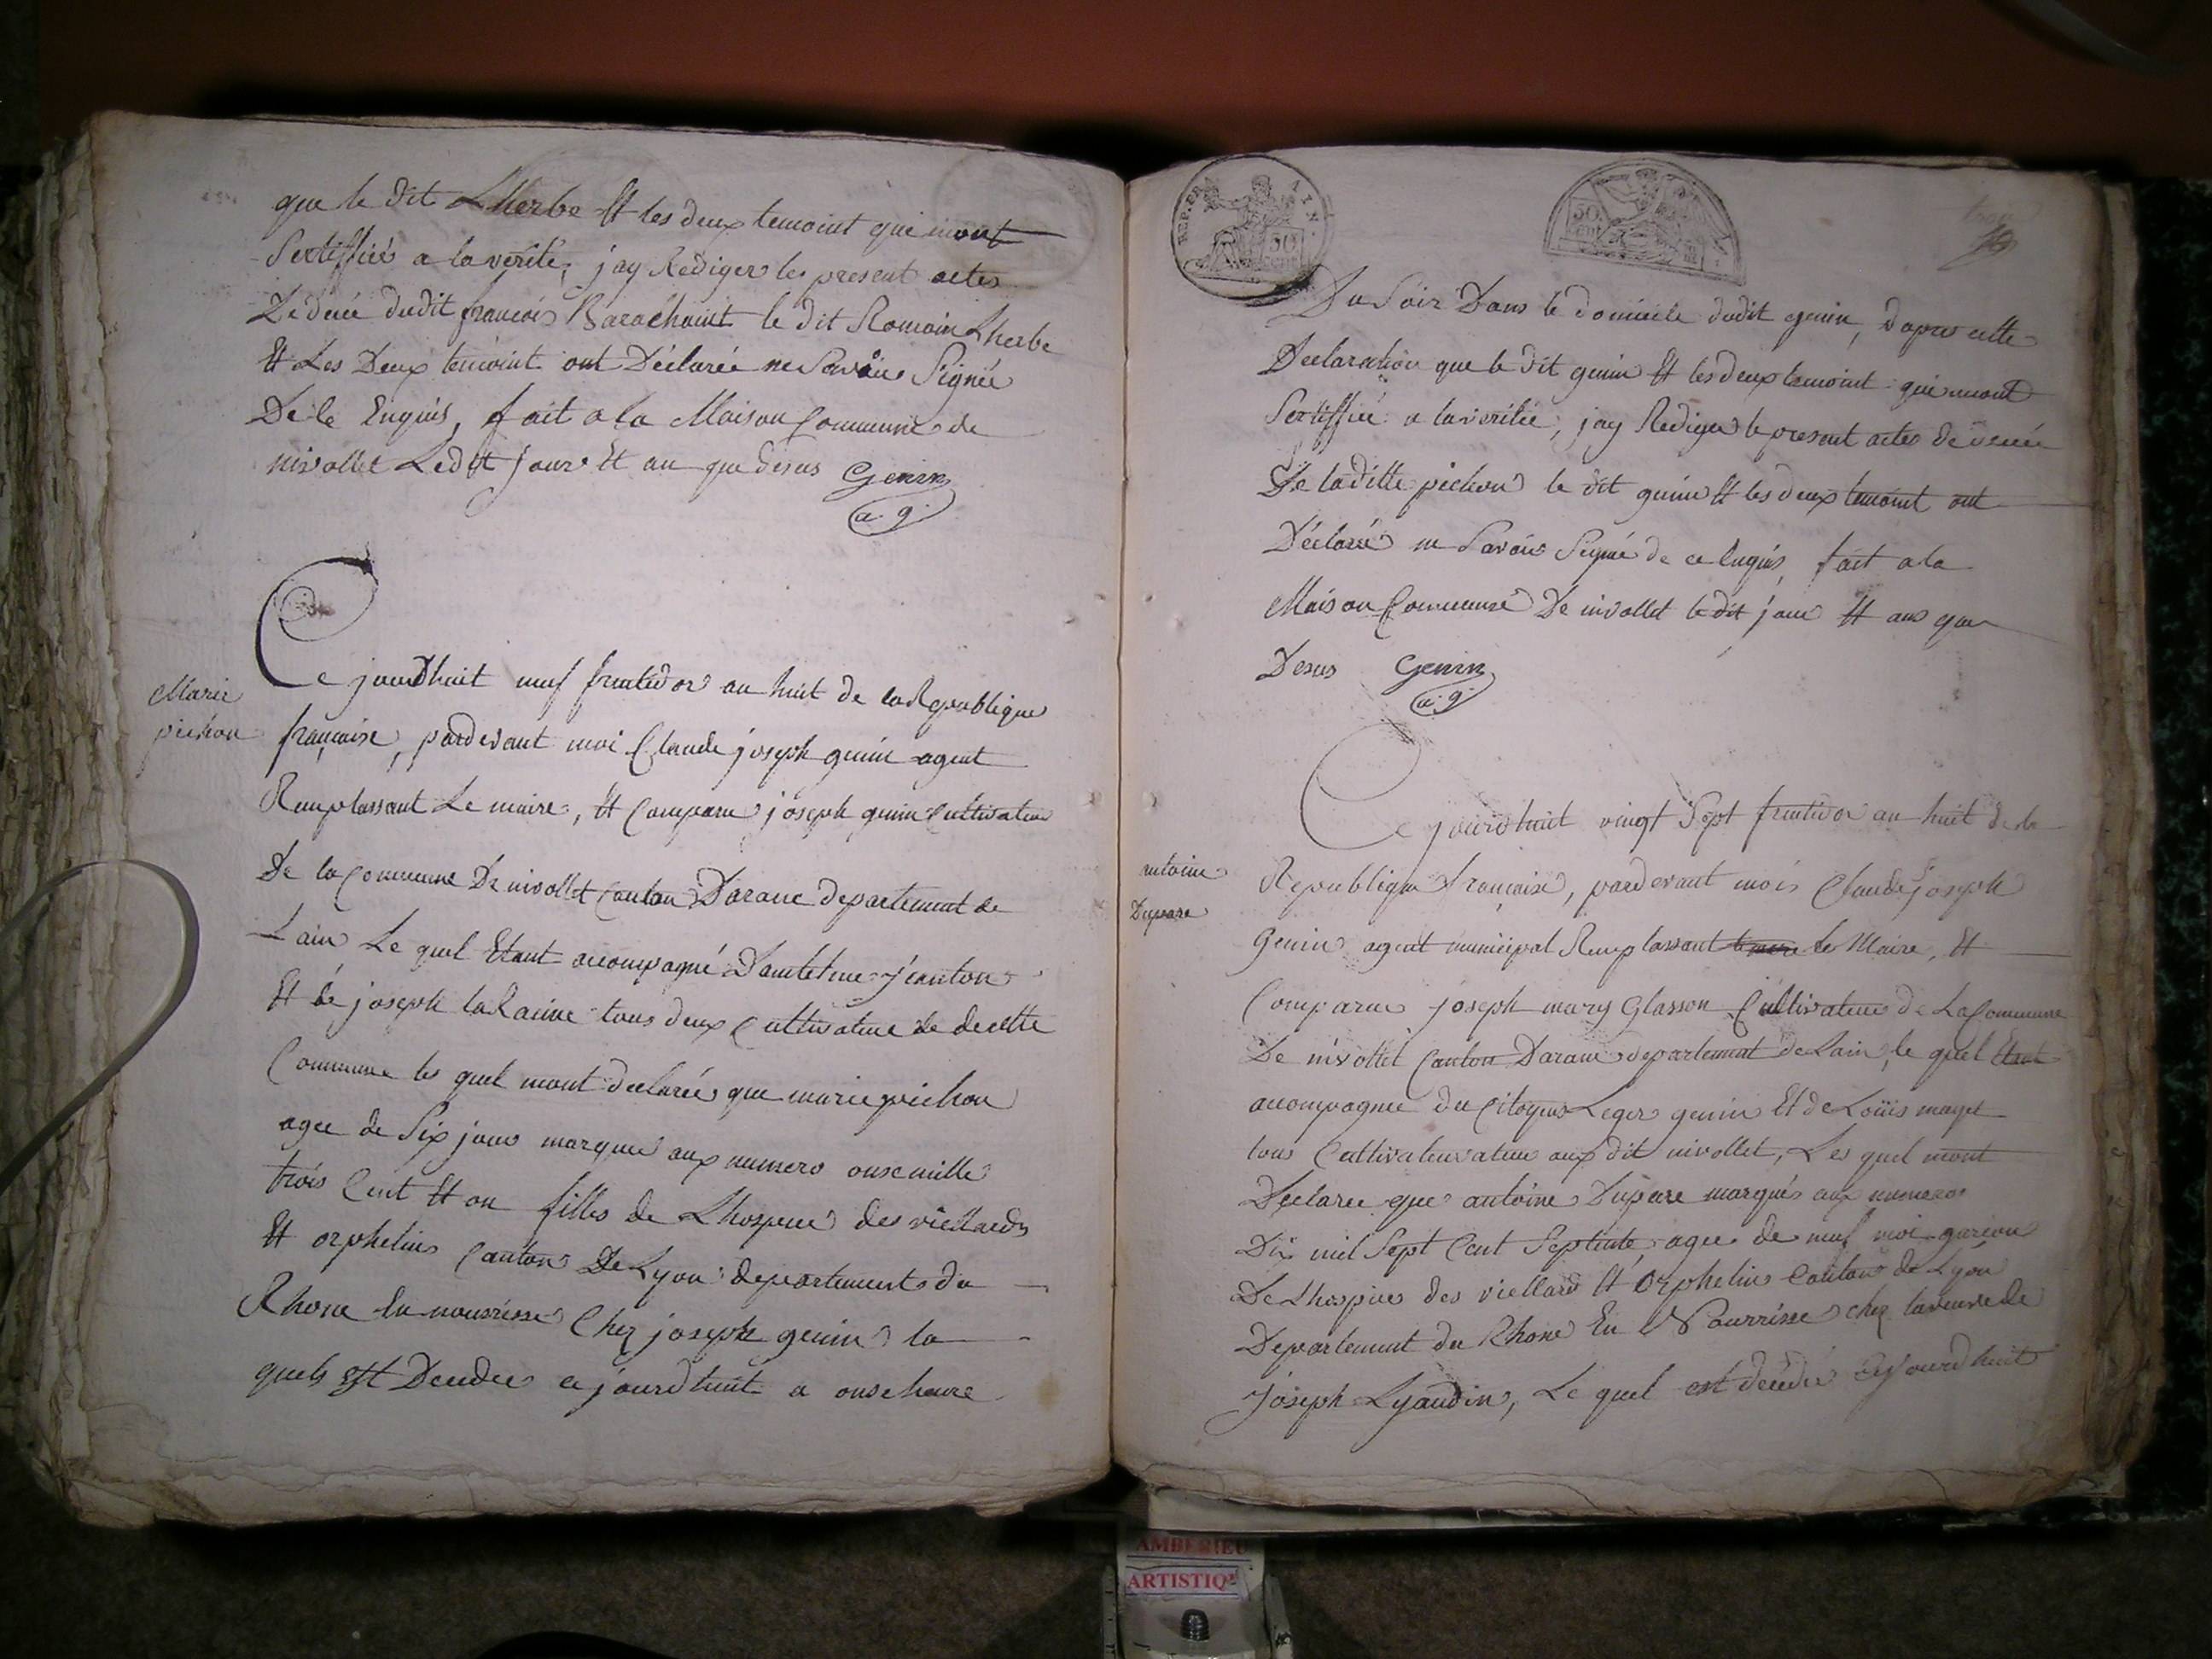 que le dit Lherbe Et les deux temoint qui mont
Sertiffiés a la vérité, jay Rediger les present actes
De décé dudit francois Barachaint le dit Romain Lherbe
Et Les Deux temoint ont Déclarée ne Savoir Signée
De le Enquis, fait a la Maison Commune de
nivollet Ledit jour Et an que desus Genin
a. g.
Ce jourdhuit neuf fruitidor an huit de la Republique
Marie
pichon
française, pardevant moi Claude joseph genin agent
Remplassant Le maire, Et Comparu joseph genin Cultivateur
De la Commune De nivollet Canton Daranc departement de
Lain Le quel Etant accompagné Dantelme jeanton
Et de joseph la Racine tous deux Cultivateur de decette
Commune les quel mont declarée que marie pichon
agee de Six jour marquée aux numero onse mille
trois Cent Et on filles de Lhospice des viellards
Et orphelins Canton De Lyon departement du
Rhone En nourisse Chez joseph genin la
quels Est Decedee ce jourdhuit a onse heure
REP. FRA
50 cent
50. cent
Du Soir Dans le domicile dudit genin, dapres cette
Declaration que le dit genin Et les deux temoint qui mont
Sertiffié a la veritée, jay Rediger le present actes de décée
De la ditte pichon le dit genin Et les deux temoint ont
Déclaré ne Savoir Signé de ce Enquis, fait a la
Maison Commune De nivollet le dit jour Et ans que
Desus Genin
a. g.
Ce jourdhuit vingt Sept fruitidor an huit de la
antoine
Dupare
Republique française, pardevant mois Claude joseph
Genin agent municipal Remplassant le Maire, Et
Comparue joseph mary Glasson Cultivateur de La Commune
De nivollet Canton Daranc departement de Lain, le quel Etant
accompagnee du Citoyens Leger genin Et de Loüis mayet
tous Cultivateurateur aux dit nivollet, Les quel mont
Declaree que antoine Dupare marqués aux numero
Dix mil Sept Cent Septinte, agee de neuf moi garcon
De Lhospice des viellard Et Orphelins Canton de Lyon
Departement du Rhone En Nourrisse chez la veuve de
joseph Lyaudin, Le quel est décédé cejourdhuit
AMBERIEU
ARTISTIQ